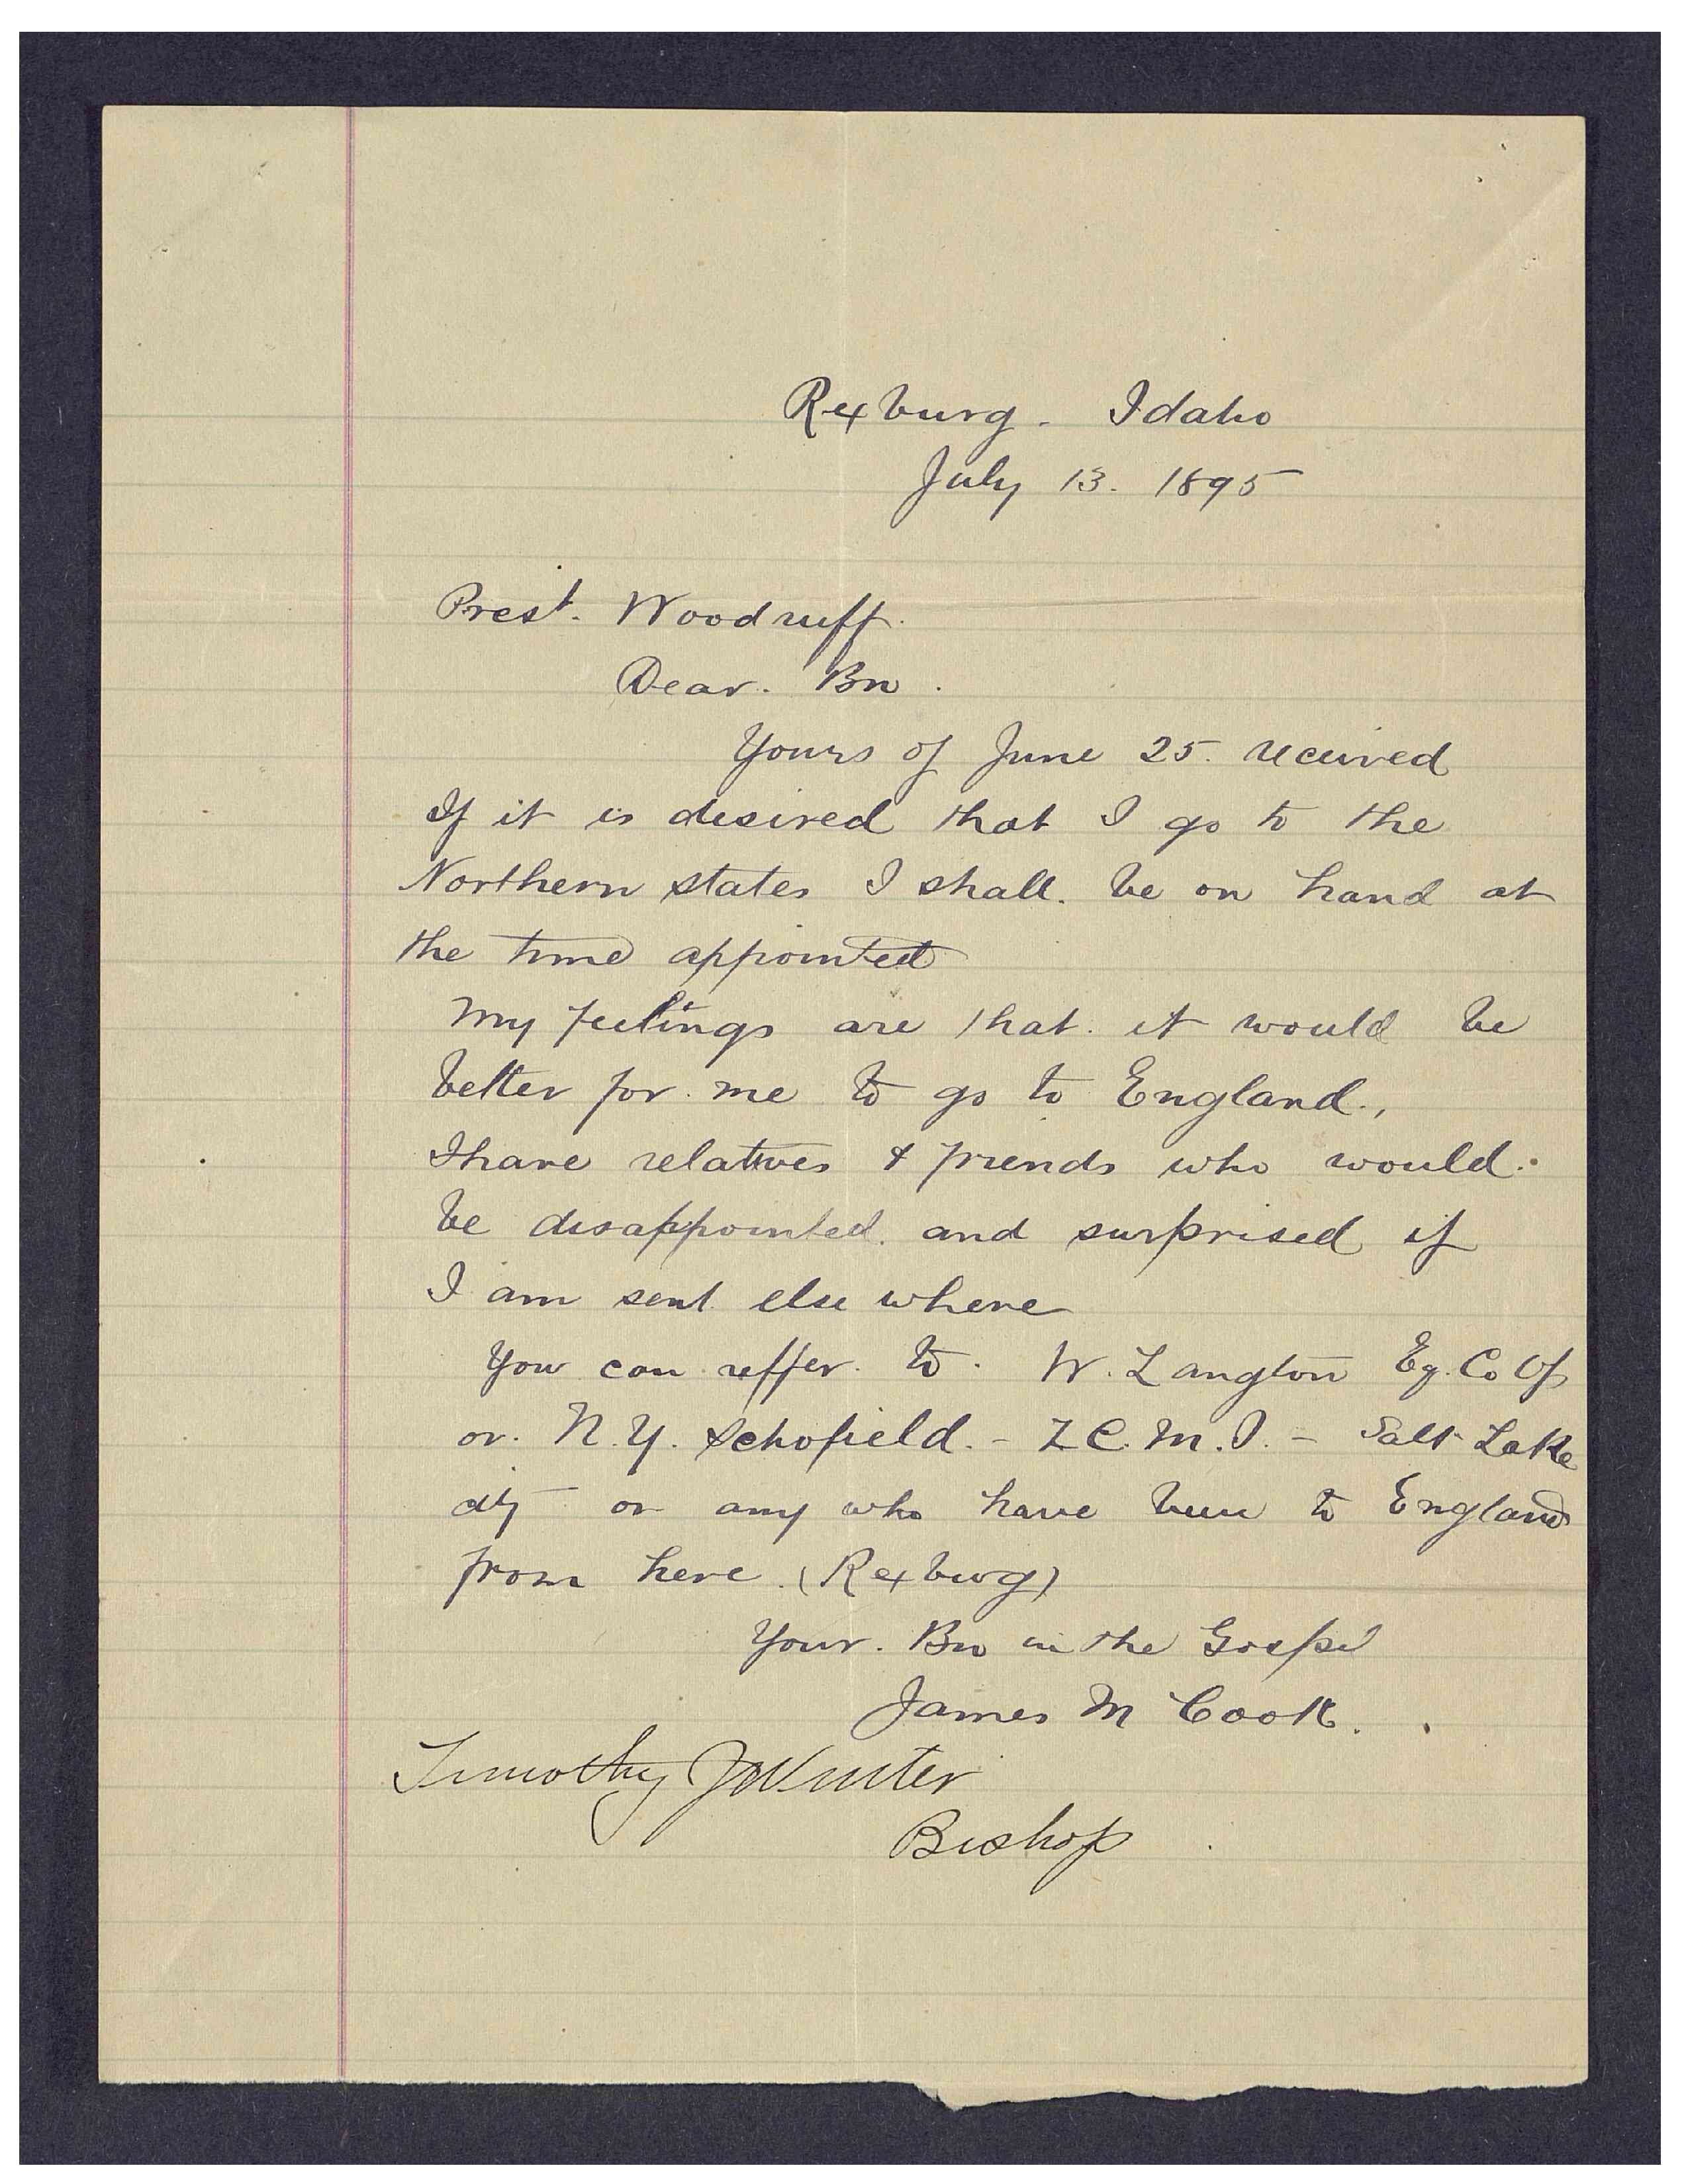 Rexburg. Idaho
July 13. 1895
Prest. Woodruff.
Dear. Bro.
Yours of June 25. received
If it is desired that I go to the
Northern states I shall. be on hand at
the time appointed
My feelings are that. it would be
better for. me to go to England.,
I have relatives & friends who would.
be disappointed. and surprised if
I am sent else where
You can reffer. to. W. Langton Eq. Co Op
or. N. Y. Schofield. - Z C. M. I. - Salt Lake
city or any who have been to England
from here. (Rexburg)
Your. Bro in the Gospel
James M Cook.
Timothy J Winter
Bishop